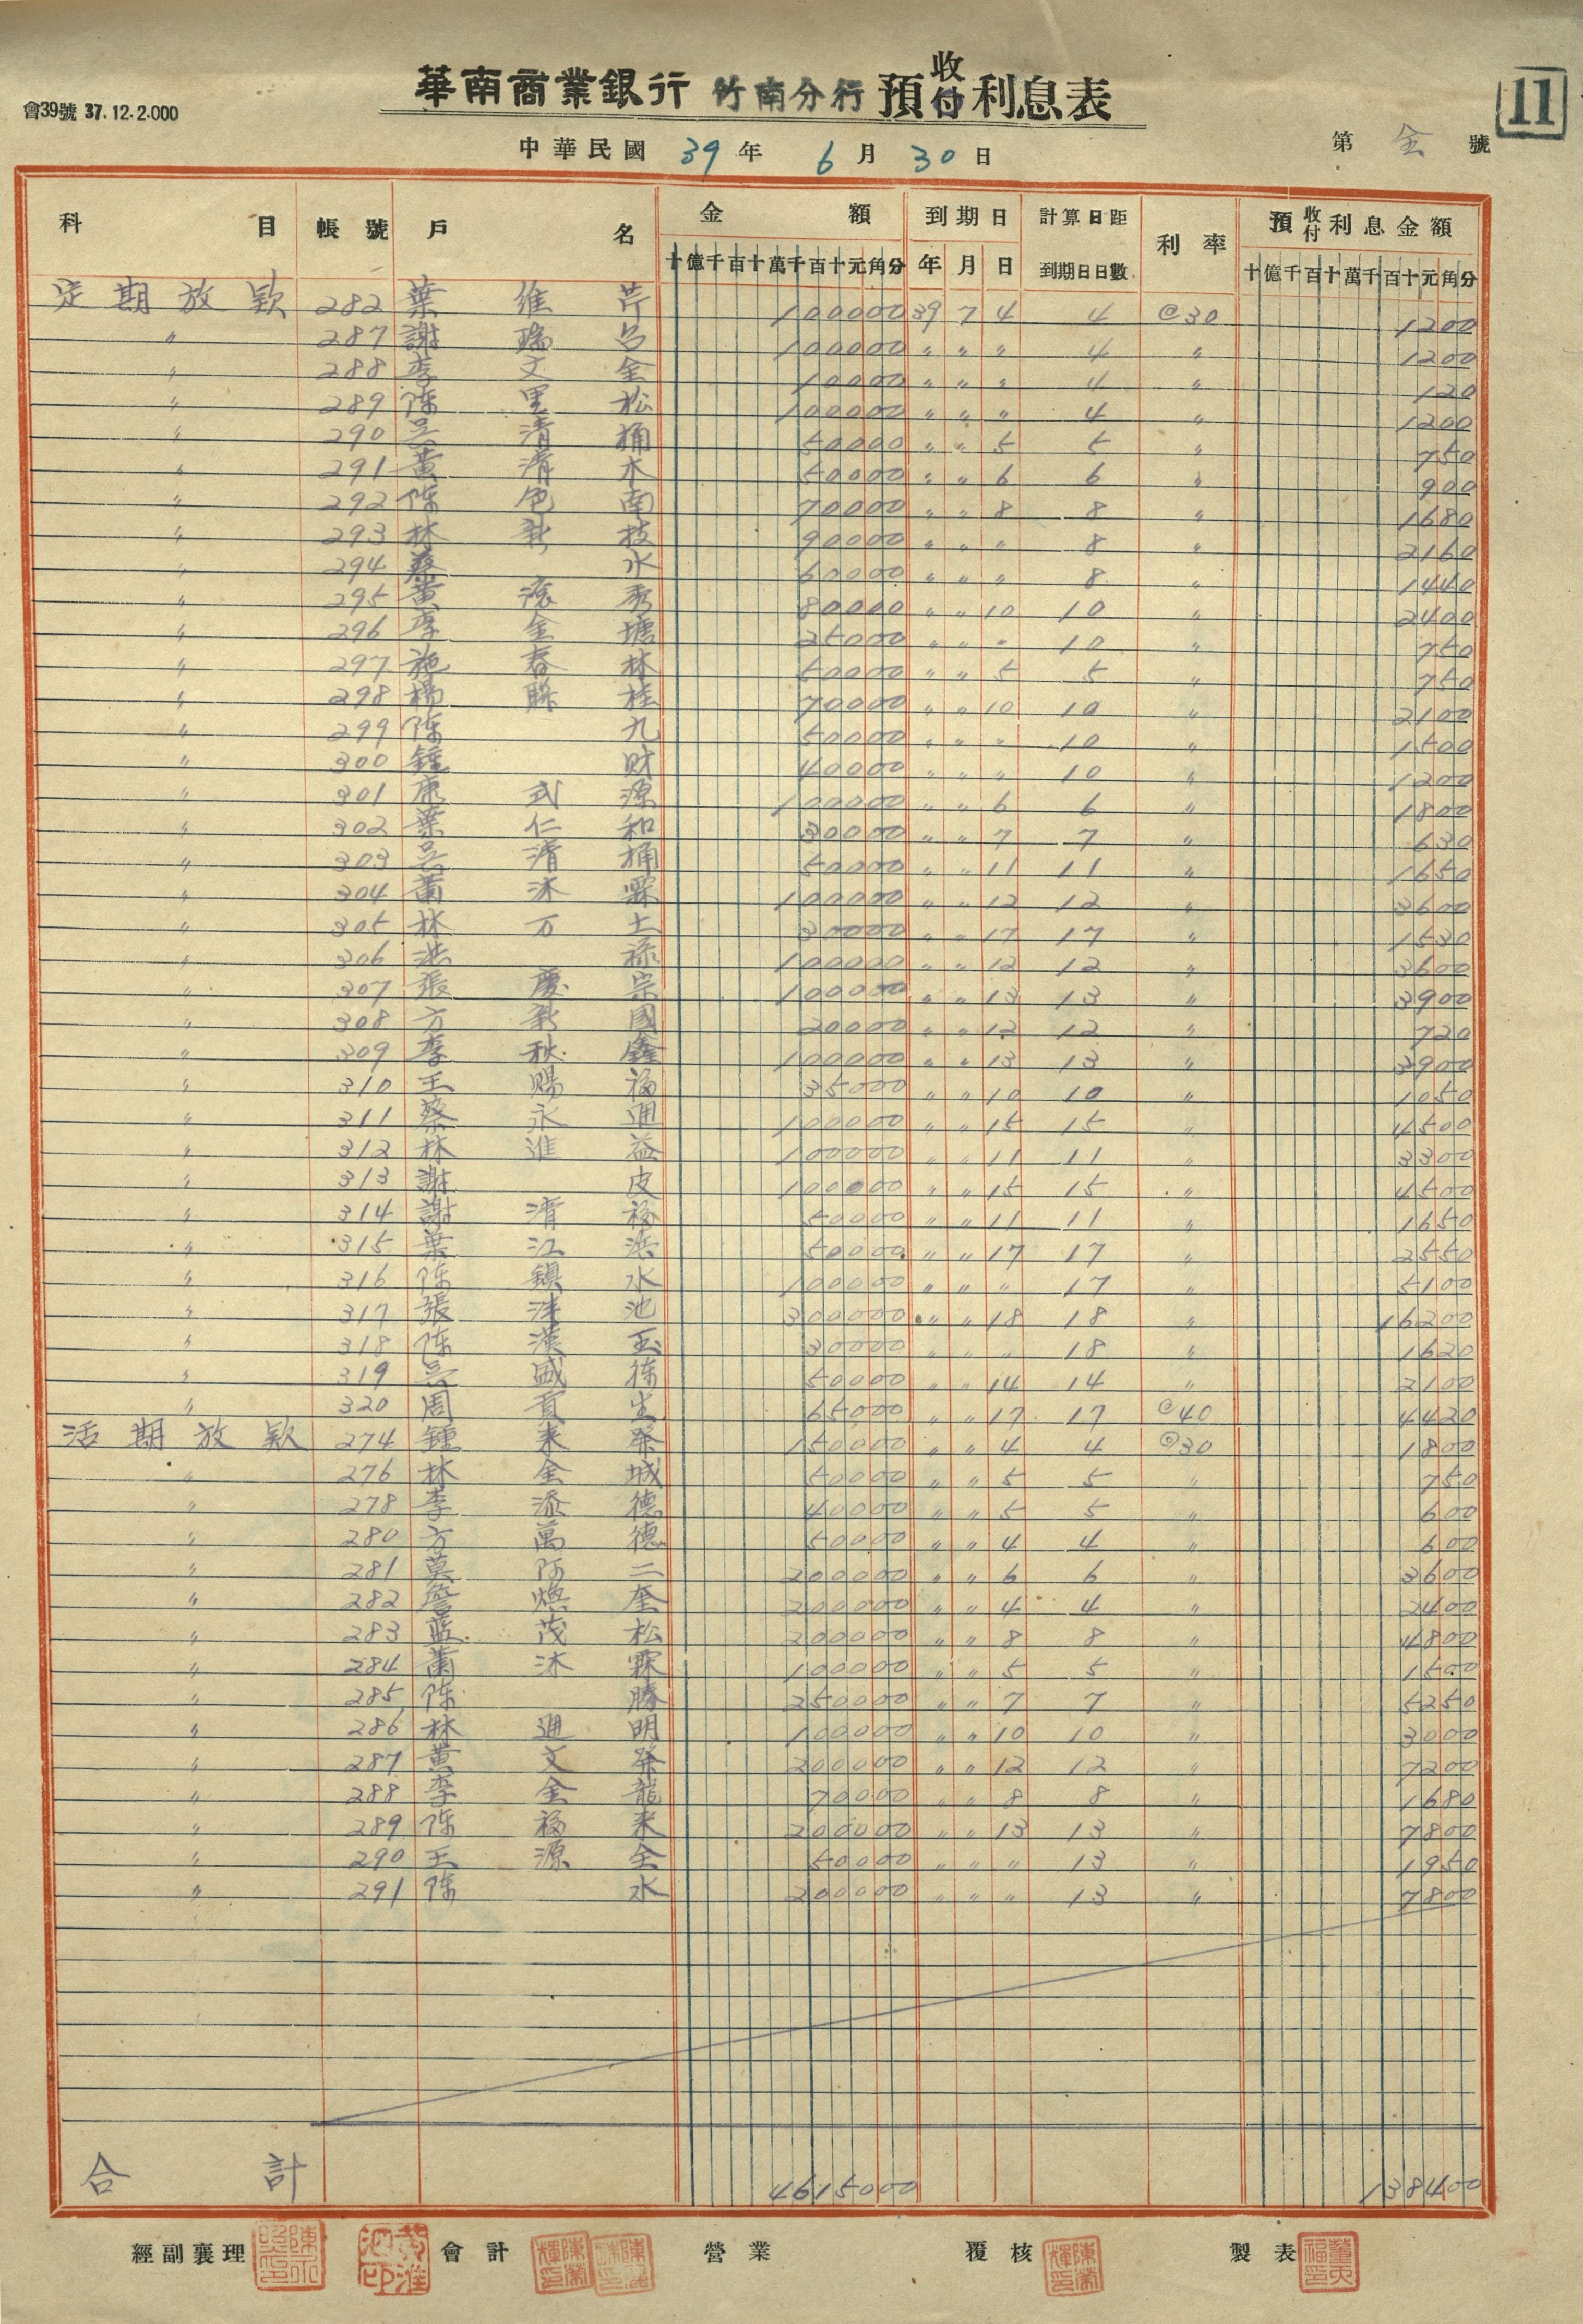 會39號 37.12.2.000
華南商業銀行 竹南分行 預收付利息表
11
中華民國 39 年 6 月 30 日
第 全 號
科目 帳號 戶名 金額 到期日 計算日距到期日日數 利率 預收付利息金額
十億千百十萬千百十元角分 年 月 日 十億千百十萬千百十元角分
定期放款 282 葉維芹 100000 39 7 4 4 @30 1200
〃 287 謝瑞呂 100000 〃 〃 〃 4 〃 1200
〃 288 李文全 10000 〃 〃 〃 4 〃 120
〃 289 陈里松 100000 〃 〃 〃 4 〃 1200
〃 290 吴清桶 50000 〃 〃 5 5 〃 750
〃 291 黄清木 50000 〃 〃 6 6 〃 900
〃 292 陈色南 70000 〃 〃 8 8 〃 1680
〃 293 林新枝 90000 〃 〃 〃 8 〃 2160
〃 294 蔡水 60000 〃 〃 〃 8 〃 1440
〃 295 黄秀 80000 〃 〃 10 10 〃 2400
〃 296 李金塘 25000 〃 〃 〃 10 〃 750
〃 297 施春林 50000 〃 〃 5 5 〃 750
〃 298 楊桂 70000 〃 〃 10 10 〃 2100
〃 299 陈九 50000 〃 〃 〃 10 〃 1500
〃 300 鍾财 40000 〃 〃 〃 10 〃 1200
〃 301 康式源 100000 〃 〃 6 6 〃 1800
〃 302 葉仁和 30000 〃 〃 7 7 〃 630
〃 303 吴清桶 50000 〃 〃 11 11 〃 1650
〃 304 黃沐霖 100000 〃 〃 12 12 〃 3600
〃 305 林万土 30000 〃 〃 17 17 〃 1530
〃 306 洪禄 100000 〃 〃 12 12 〃 3600
〃 307 張慶宗 100000 〃 〃 13 13 〃 3900
〃 308 方新國 20000 〃 〃 12 12 〃 720
〃 309 李秋鑫 100000 〃 〃 13 13 〃 3900
〃 310 王赐福 35000 〃 〃 10 10 〃 1050
〃 311 蔡永通 100000 〃 〃 15 15 〃 4500
〃 312 林進益 100000 〃 〃 11 11 〃 3300
〃 313 謝皮 100000 〃 〃 15 15 〃 4500
〃 314 謝清福 50000 〃 〃 11 11 〃 1650
〃 315 葉江浜 50000 〃 〃 17 17 〃 2550
〃 316 陈鎮水 100000 〃 〃 〃 17 〃 5100
〃 317 張池 300000 〃 〃 18 18 〃 16200
〃 318 陈漢玉 30000 〃 〃 〃 18 〃 1620
〃 319 吴盛 50000 〃 〃 14 14 〃 2100
〃 320 周貢生 65000 〃 〃 17 17 @40 4420
活期放款 274 鍾来發 150000 〃 〃 4 4 @30 1800
〃 276 林金城 50000 〃 〃 5 5 〃 750
〃 278 李添德 40000 〃 〃 5 5 〃 600
〃 280 方萬德 50000 〃 〃 4 4 〃 600
〃 281 莫阿二 200000 〃 〃 6 6 〃 3600
〃 282 詹煥奎 200000 〃 〃 4 4 〃 2400
〃 283 藍茂松 200000 〃 〃 8 8 〃 4800
〃 284 黃沐霖 100000 〃 〃 5 5 〃 1500
〃 285 陈勝 250000 〃 〃 7 7 〃 5250
〃 286 林迺明 100000 〃 〃 10 10 〃 3000
〃 287 黄文發 200000 〃 〃 12 12 〃 7200
〃 288 李金龍 70000 〃 〃 8 8 〃 1680
〃 289 陈福来 200000 〃 〃 13 13 〃 7800
〃 290 王源全 50000 〃 〃 〃 13 〃 1950
〃 291 陈水 200000 〃 〃 〃 13 〃 7800
合計 4615000 138400
經副襄理 會計 營業 覆核 製表